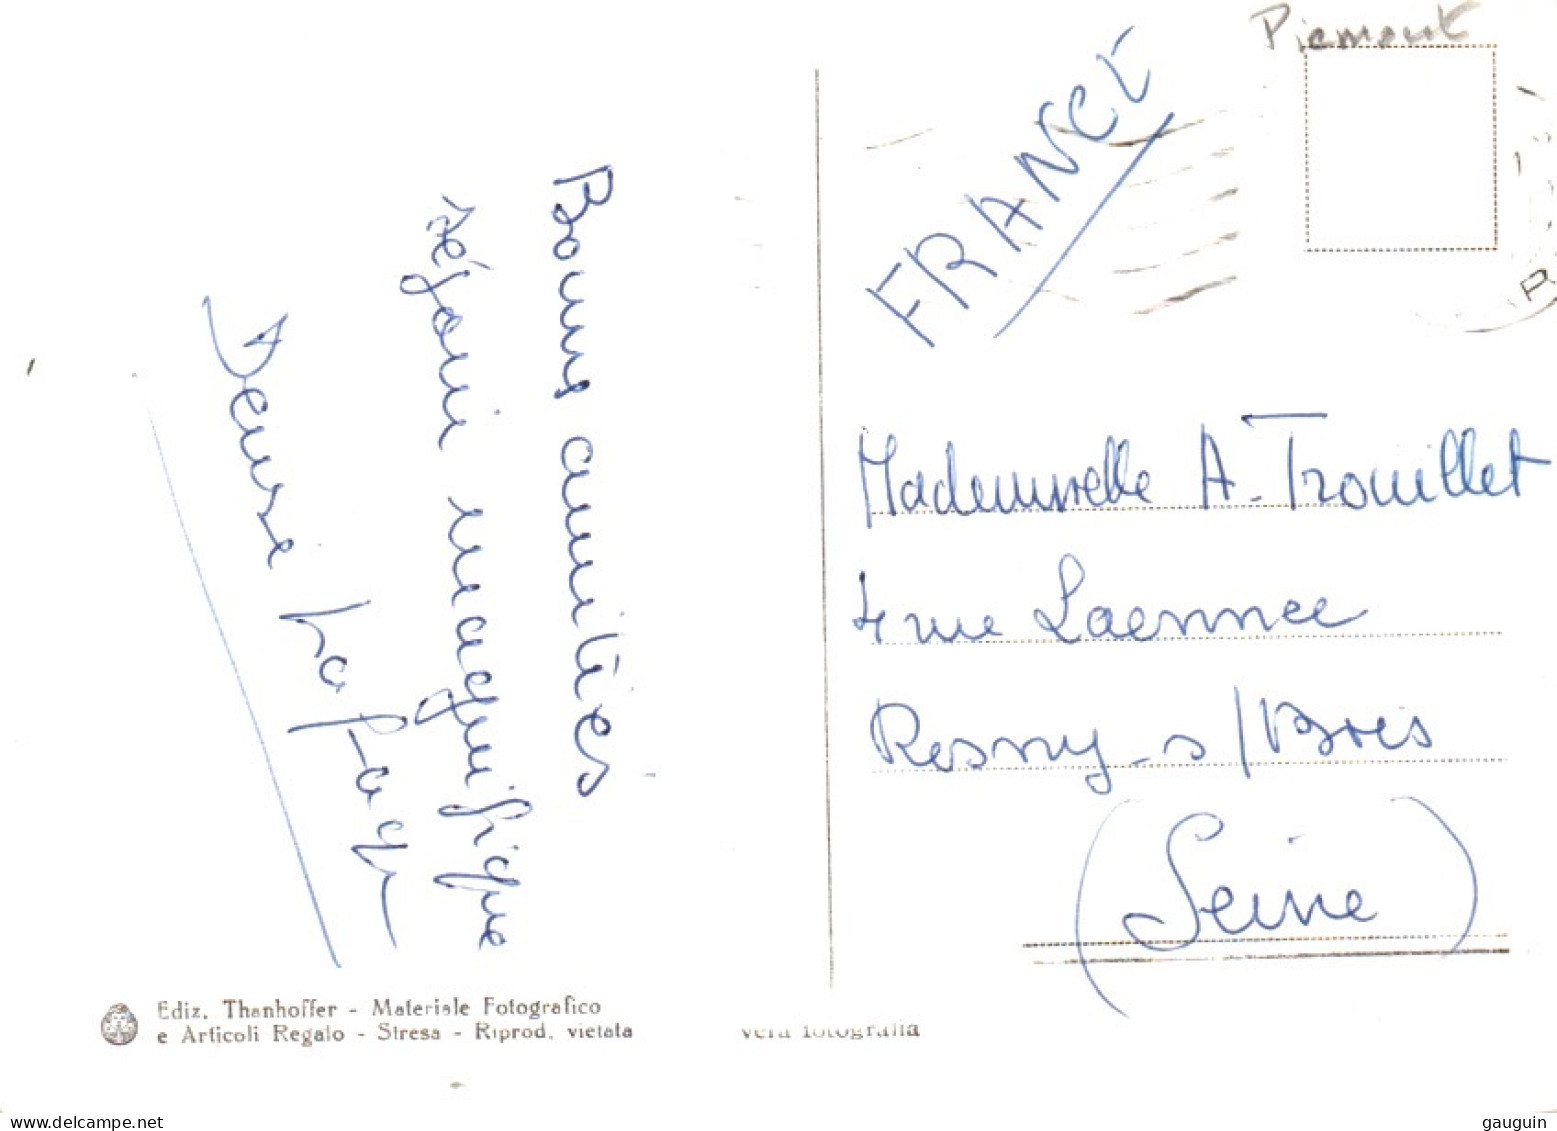 Piemont
FRANCE
Bonnes amitiés
séjour magnifique
Denise
Mademoiselle A. Trouillet
4 rue Laennec
Rosny-s/Bois
(Seine)
Ediz. Thanhoffer - Materiale Fotografico
e Articoli Regalo - Stresa - Riprod. vietata
vera fotografia
www.delcampe.net
gauguin